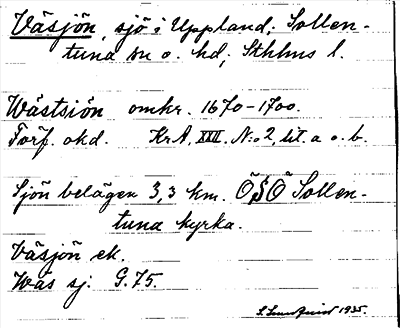 Väsjön, sjö i Uppland, Sollen-
tuna sn o. hd, Sthlms l.
Wästsiön omkr. 1670-1700.
Förf. okd. KrA, XXII. N:o 2, lit. a o. b.
Sjön belägen 3,3 km. ÖSÖ Sollen-
tuna kyrka.
Väsjön ek.
Wäs sj. G.75.
S. Lundquist 1935.